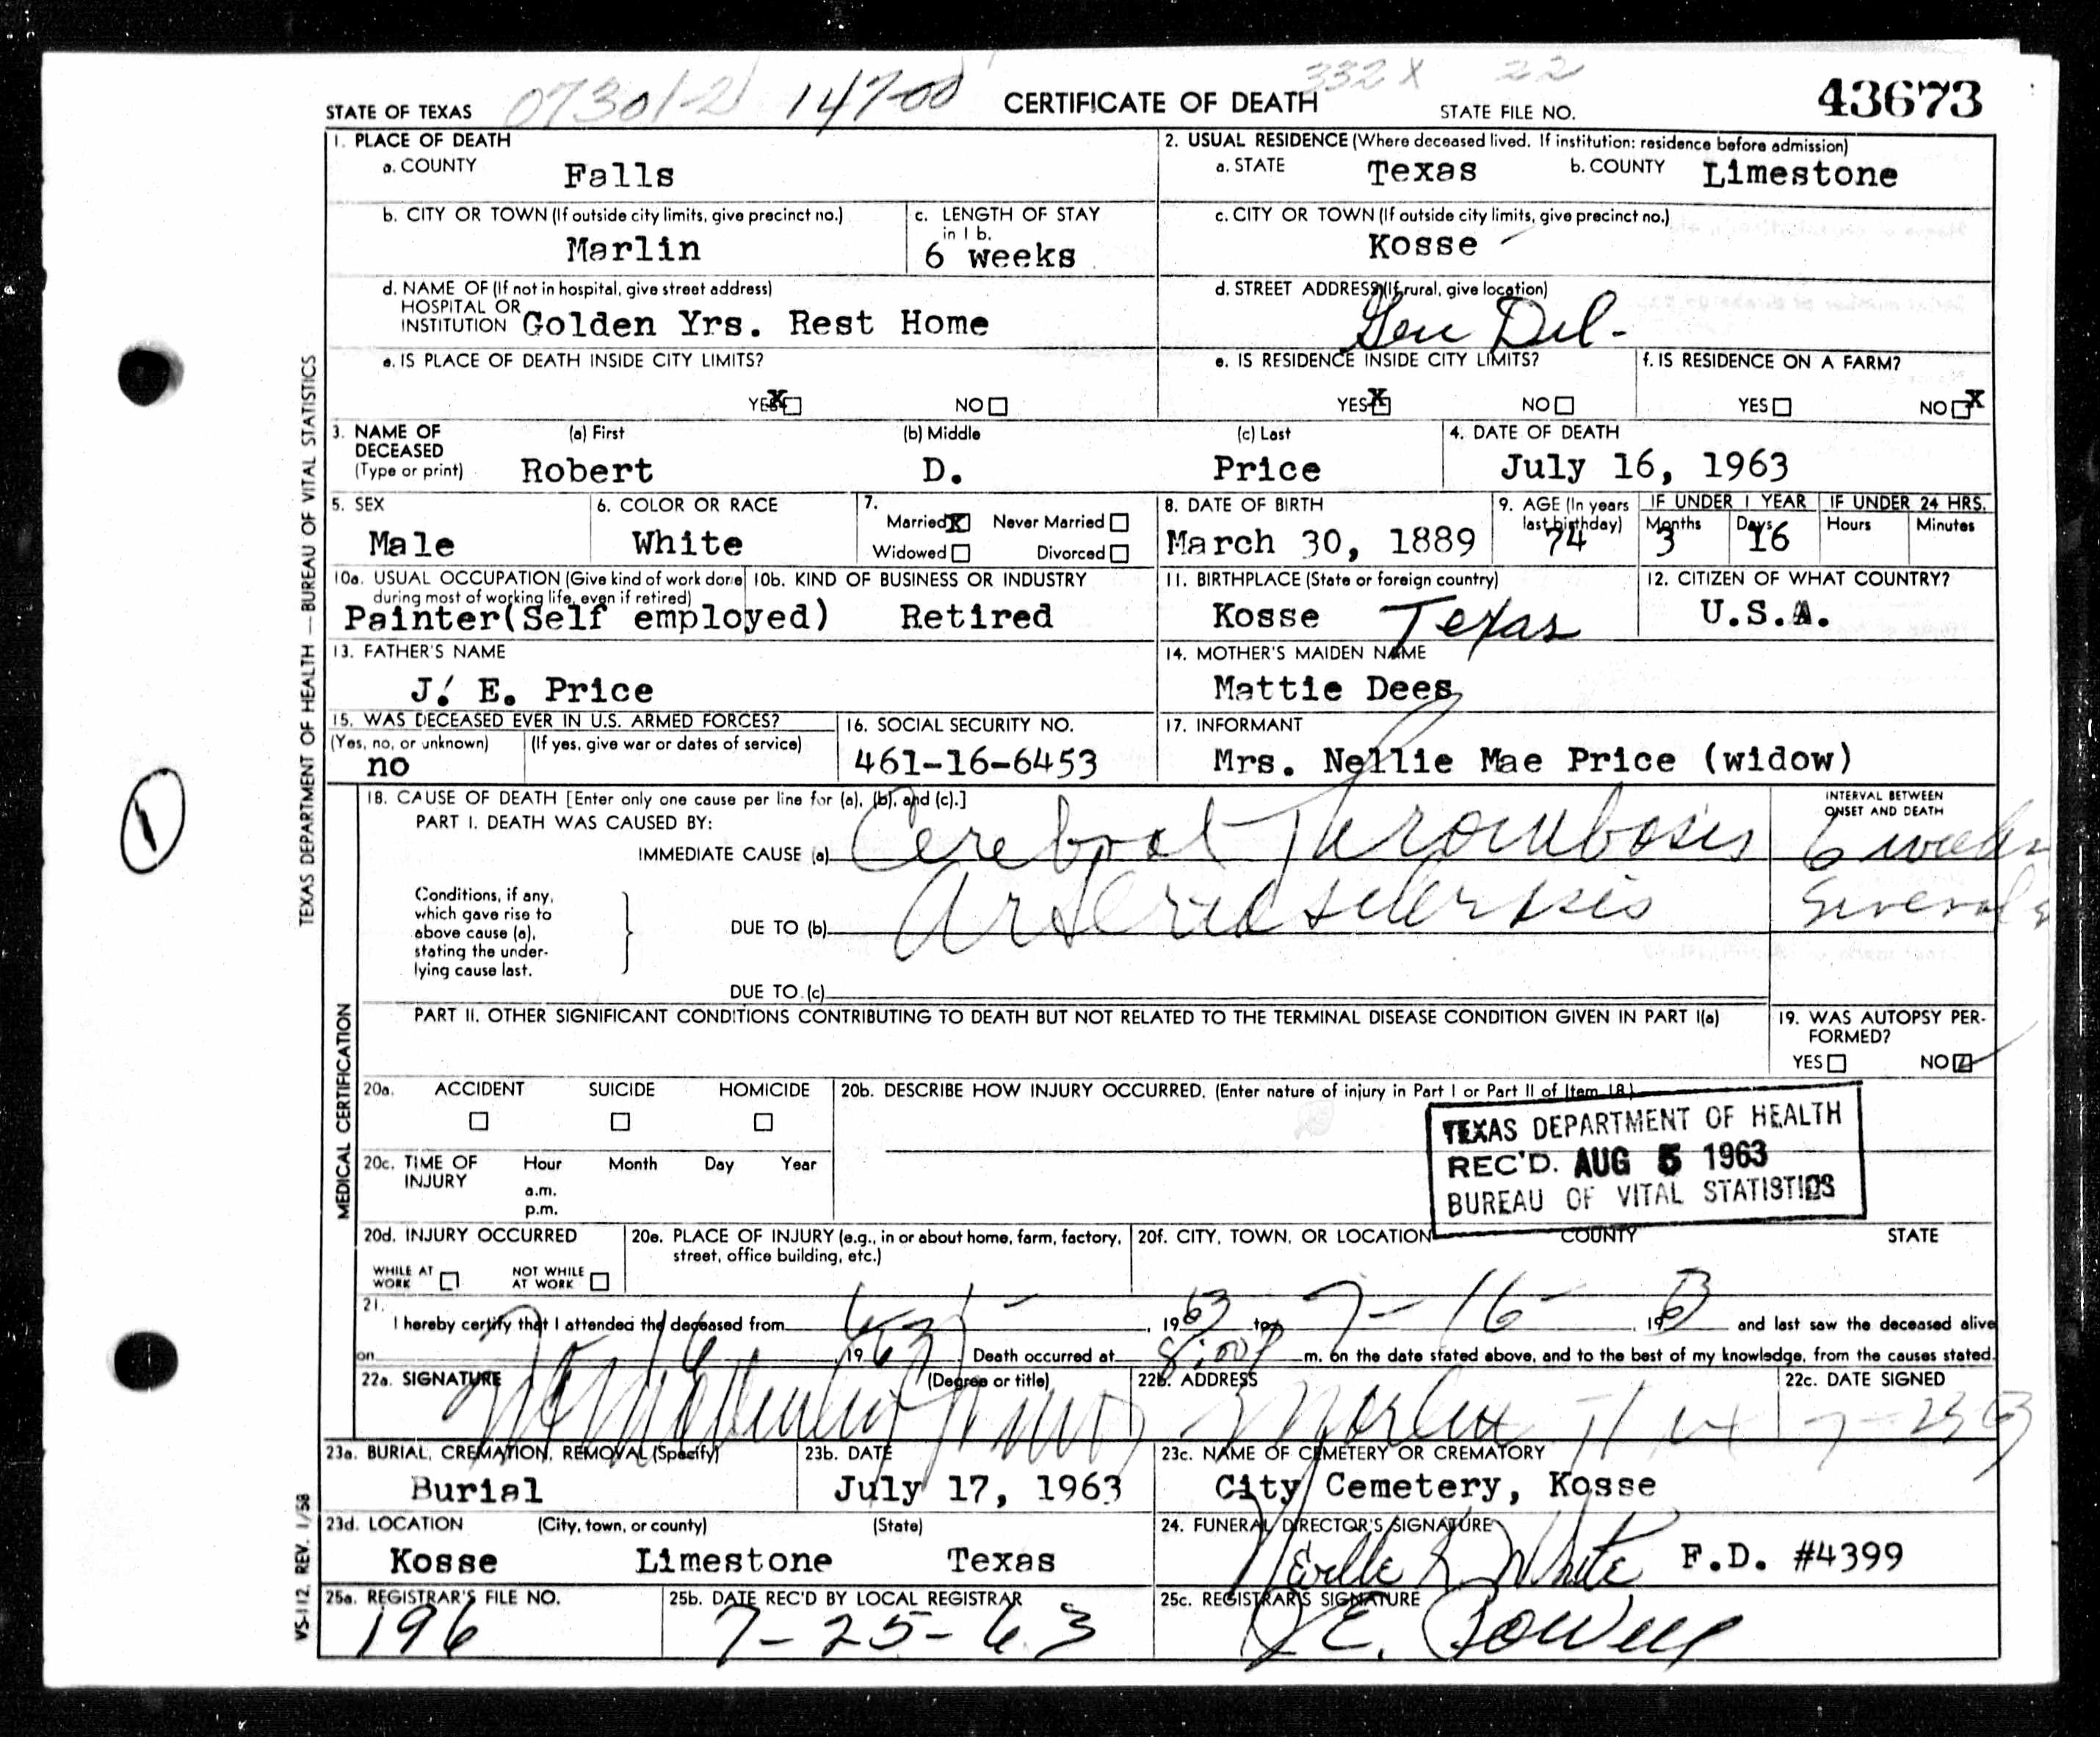 STATE OF TEXAS 07301-2 147-00 CERTIFICATE OF DEATH 332X 22 STATE FILE NO. 43673
1. PLACE OF DEATH
a. COUNTY Falls
2. USUAL RESIDENCE (Where deceased lived. If institution: residence before admission)
a. STATE Texas b. COUNTY Limestone
b. CITY OR TOWN (If outside city limits, give precinct no.)
Marlin
c. LENGTH OF STAY
in 1 b.
6 weeks
c. CITY OR TOWN (If outside city limits, give precinct no.)
Kosse
d. NAME OF (If not in hospital, give street address)
HOSPITAL OR
INSTITUTION Golden Yrs. Rest Home
d. STREET ADDRESS (If rural, give location)
Gen Del-
e. IS PLACE OF DEATH INSIDE CITY LIMITS?
YES X NO
e. IS RESIDENCE INSIDE CITY LIMITS?
YES X NO
f. IS RESIDENCE ON A FARM?
YES NO X
3. NAME OF DECEASED
(Type or print)
(a) First Robert
(b) Middle D.
(c) Last Price
4. DATE OF DEATH
July 16, 1963
5. SEX
Male
6. COLOR OR RACE
White
7.
Married X Never Married
Widowed Divorced
8. DATE OF BIRTH
March 30, 1889
9. AGE (In years
last birthday)
74
IF UNDER 1 YEAR
Months Days
3 16
IF UNDER 24 HRS.
Hours Minutes
10a. USUAL OCCUPATION (Give kind of work done
during most of working life, even if retired)
Painter(Self employed)
10b. KIND OF BUSINESS OR INDUSTRY
Retired
11. BIRTHPLACE (State or foreign country)
Kosse Texas
12. CITIZEN OF WHAT COUNTRY?
U.S.A.
13. FATHER'S NAME
J. E. Price
14. MOTHER'S MAIDEN NAME
Mattie Dees
15. WAS DECEASED EVER IN U.S. ARMED FORCES?
(Yes, no, or unknown) (If yes, give war or dates of service)
no
16. SOCIAL SECURITY NO.
461-16-6453
17. INFORMANT
Mrs. Nellie Mae Price (widow)
18. CAUSE OF DEATH [Enter only one cause per line for (a), (b), and (c).]
PART I. DEATH WAS CAUSED BY:
INTERVAL BETWEEN
ONSET AND DEATH
IMMEDIATE CAUSE (a) Cerebral Thrombosis 6 weeks
Conditions, if any,
which gave rise to
above cause (a),
stating the under-
lying cause last.
DUE TO (b) Arteriosclerosis
DUE TO (c)
PART II. OTHER SIGNIFICANT CONDITIONS CONTRIBUTING TO DEATH BUT NOT RELATED TO THE TERMINAL DISEASE CONDITION GIVEN IN PART I(a)
19. WAS AUTOPSY PER-
FORMED?
YES NO
20a. ACCIDENT SUICIDE HOMICIDE
20b. DESCRIBE HOW INJURY OCCURRED. (Enter nature of injury in Part I or Part II of Item 18.)
TEXAS DEPARTMENT OF HEALTH
REC'D. AUG 5 1963
BUREAU OF VITAL STATISTICS
20c. TIME OF
INJURY
Hour Month Day Year
a.m.
p.m.
20d. INJURY OCCURRED
WHILE AT
WORK
NOT WHILE
AT WORK
20e. PLACE OF INJURY (e.g., in or about home, farm, factory,
street, office building, etc.)
20f. CITY, TOWN, OR LOCATION COUNTY STATE
21.
I hereby certify that I attended the deceased from 6-1-, 1963 to 7-16-, 1963 and last saw the deceased alive
on 7-16, 1963. Death occurred at 8:00P m. on the date stated above, and to the best of my knowledge, from the causes stated.
22a. SIGNATURE (Degree or title)
22b. ADDRESS
Marlin Tex
22c. DATE SIGNED
23a. BURIAL, CREMATION, REMOVAL (Specify)
Burial
23b. DATE
July 17, 1963
23c. NAME OF CEMETERY OR CREMATORY
City Cemetery, Kosse
23d. LOCATION (City, town, or county) (State)
Kosse Limestone Texas
24. FUNERAL DIRECTOR'S SIGNATURE
White F.D. #4399
25a. REGISTRAR'S FILE NO.
196
25b. DATE REC'D BY LOCAL REGISTRAR
7-25-63
25c. REGISTRAR'S SIGNATURE
TEXAS DEPARTMENT OF HEALTH — BUREAU OF VITAL STATISTICS
MEDICAL CERTIFICATION
VS-112, REV. 1/58
1